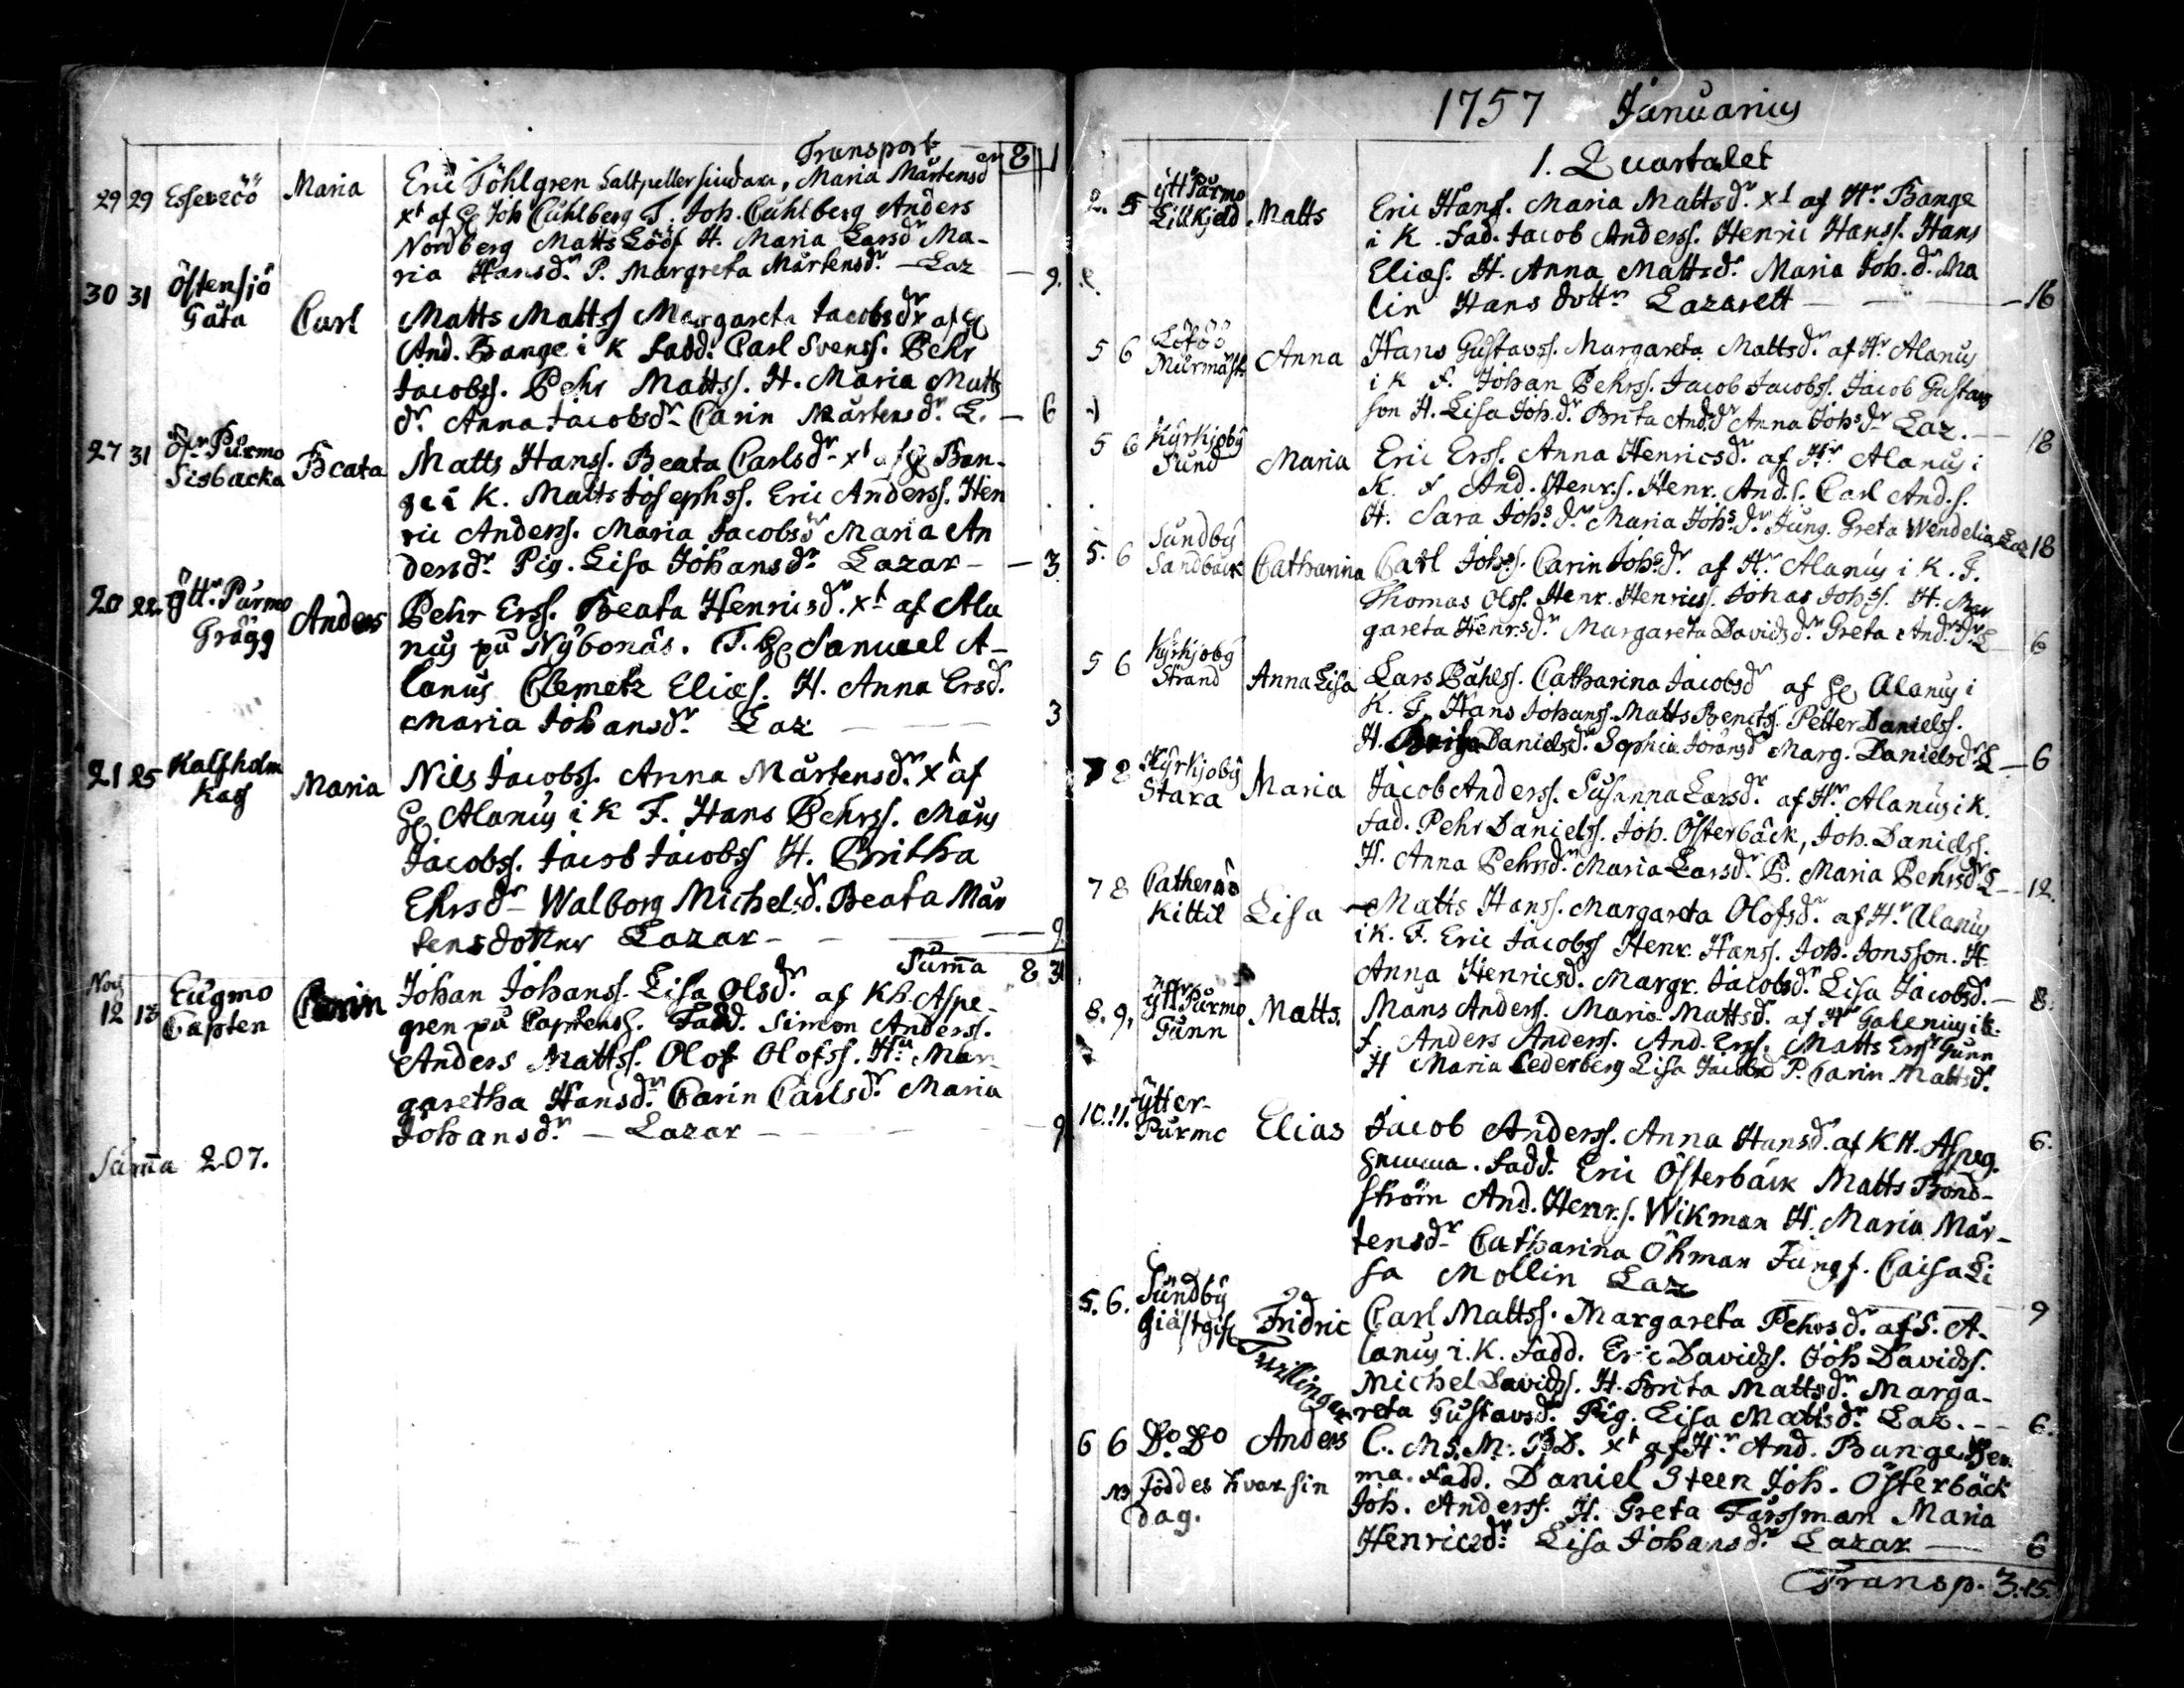 Transport 8 1
29 29 Esseröö Maria Eric Föhlgren Saltpettersiudare, Maria Mårtensdr
xt af Joh Cuhlberg F. Joh. Cuhlberg Anders
Nordberg Matts Lööf H. Maria Larsdr Ma-
ria Hansdr. P. Margreta Mårtensdr. — Laz — 9.
30 31 Östensjö Gåta Carl Matts Mattss Margareta Jacobsdr af
And. Bange i K Fadd. Carl Svenss. Pehr
Jacobss. Pehr Mattss. H. Maria Matts
dr. Anna Jacobsdr Carin Mårtensdr. L. — 6
27 31 Öfr Purmo Sisbacka Beata Matts Hanss. Beata Carlsdr xt af Ban-
ge i K. Matts Josephss. Eric Anderss. Hen
ric Anderss. Maria Jacobsdr Maria An
dersdr. Pig. Lisa Johansdr Lazar — 3
20 22 Ytt. Purmo Grägg Anders Pehr Erss. Beata Henricsdr. xt af Ala
nus på Nybonäs. F. Samuel A-
lanus Clemetz Elias. H. Anna Ersd.
Maria Johansdr. Laz — 3
21 25 Kalfholm Kass Maria Nils Jacobss. Anna Mårtensdr. xt af
Alanus i K F. Hans Pehrss. Måns
Jacobss. Jacob Jacobss H. Britha
Ehrsdr Walborg Michelsd. Beata Mår
tensdotter Lazar — 9.
Suma 8 31
Nov
12 13 Lugmo Capten Carin Johan Johanss. Lisa Olsdr. af Kh. Aspe-
gren på Captens. Fadd. Simon Anderss.
Anders Mattss. Olof Olofss. Hu. Mar
garetha Hansdr. Carin Carlsdr. Maria
Johansdr. — Lazar — 9
Suma 207.
1757 Januarius
1. Quartalet
2. 5 Ytt Purmo Lillkjeld Matts Eric Hanss. Maria Mattsdr. xt af Hr. Bange
i K. Fad. Jacob Anderss. Henric Hanss. Hans
Elias. H. Anna Mattsdr. Maria Joh. dr. Ma
lin Hans dottr Lazarett — 16
5 6 Lötöö Murmäst. Anna Hans Gustavss. Margareta Mattsdr. af Hr Alanus
i K F. Johan Pehrss. Jacob Jacobss. Jacob Gustavs
son H. Lisa Joh. dr. Brita And. dr Anna Johsdr Laz. — 18
5 6 Kyrkjoby Sund Maria Eric Erss. Anna Henricsdr. af Hr Alanus i
K. F And. Henr. s. Henr. And. s. Carl And. s.
H. Sara Johs dr. Maria Johs. dr. Jung. Greta Wendelia Laz 18
5. 6 Sundby Sandback Catharina Carl Johss. Carin Johsdr. af Hr. Alanus i K. F.
Thomas Olss. Henr. Henricss. Johas Johss. H. Mar
gareta Henrsdr. Margareta Davidsdr. Greta And. dr. L — 6
5 6 Kyrkjoby Strand Anna Lisa Lars Påhlss. Catharina Jacobsdr af Alanus i
K. F. Hans Johanss. Matts Benctss. Petter Danielss.
H. Danielsdr. Sophia Joransdr Marg. Danielsdr. L — 6
7 8 Kyrkjoby Stara Maria Jacob Anderss. Susanna Larsdr. af Hr. Alanus i K.
Fad. Pehr Danielss. Joh. Österbäck, Joh. Danielss.
H. Anna Pehrsdr. Maria Larsdr. P. Maria Pehrsdr. L — 12.
7 8 Kittil Lisa Matts Hanss. Margareta Olofsdr. af Hr Alanus
i K. F. Eric Jacobss Henr. Hanss. Joh. Jonsson. H
Anna Henricsd. Margr. Jacobsdr. Lisa Jacobsd. — 8.
8. 9. Ytt. Purmo Gunn Matts. Mans Anderss. Maria Mattsd. af Hr Galenius i K.
F. Anders Anderss. And. Erss. Matts Erss Gunn
H Maria Cederberg Lisa Jacobsd P. Carin Mattsd.
6.
10. 11. Ytter- Purmo Elias Jacob Anderss. Anna Hansdr. af KH. Aspeg.
Fadd. Eric Österbäck Matts Bond-
ström And. Henr. s. Wikman H. Maria Mår-
tensdr Catharina Öhman Jungf. Caisa Li
sa Mollin Laz — 9
5. 6. Sundby Giästgif Fridric Carl Mattss. Margareta Pehrsdr. af S. A-
lanus i. K. Fadd. Eric Davidss. Joh Davidss.
Michel Davidss. H. Brita Mattsdr. Marga-
reta Gustavsdr. Pig. Lisa Mattsdr. Laz. — 6.
Twillingar
6 6 Do. Do Anders C. Ms. M. P. D. xt af Hr. And. Bange
ma. Fadd. Daniel Steen Joh. Österbäck
Joh. Anderss. H. Greta Farssman Maria
Henricsdr. Lisa Johansdr. Lazar — 6
NB föddes hvar sin
dag.
Transp. 3. 15.